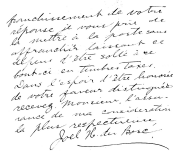 franchissement de votre
réponse je vous prie de
la mettre à la poste sans
affranchir laissant ce
départ d'être solté à ce
bout-ci en timbres taxes.
Dans l'espoir d'être honoré
de votre faveur distinguée
recevez Monsieur, l'assu-
rance de ma considération
la plus respectueuse
Joël H.